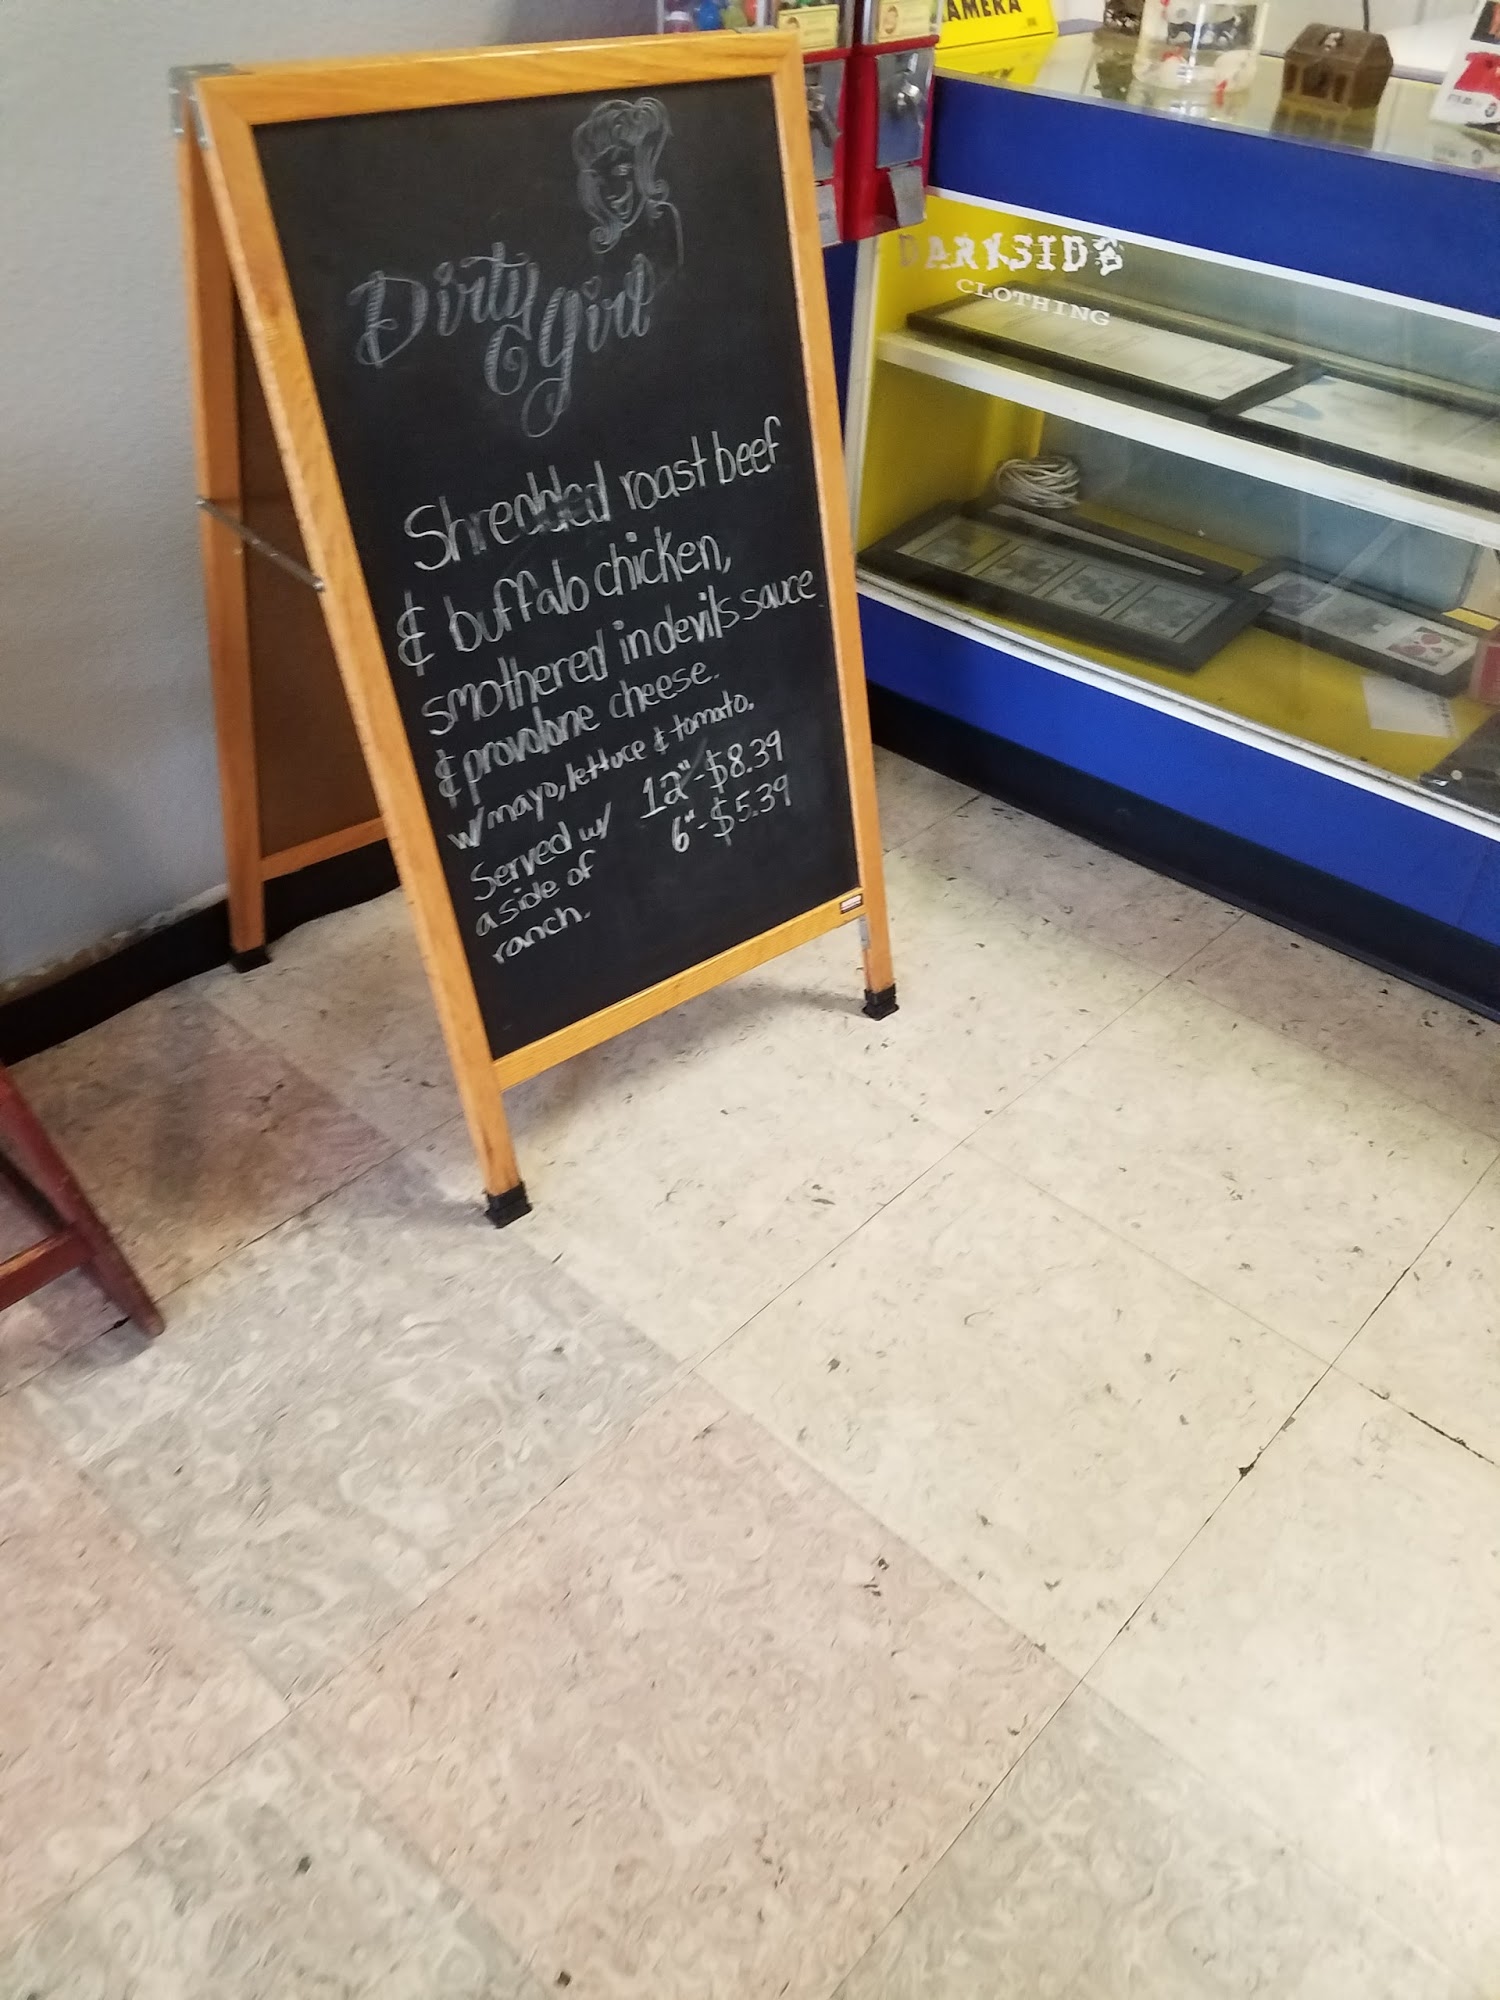 KAMERA
DARKSIDE
CLOTHING
Dirty
Girl
Shredded roast beef
& buffalo chicken,
smothered in devil's sauce
& provolone cheese.
w/ mayo, lettuce & tomato.
Served w/
a side of
ranch.
12"-$8.39
6"-$5.39